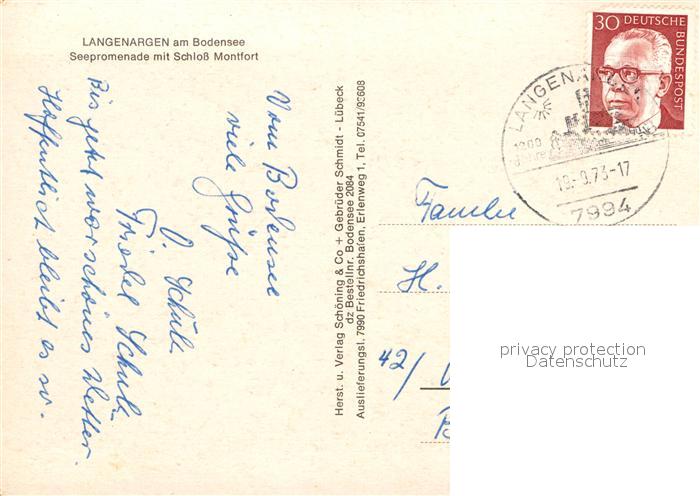 LANGENARGEN am Bodensee
Seepromenade mit Schloß Montfort
Vom Bodensee
viele Grüße
O. Schulz
Friedel Schulz
Bis jetzt war schönes Wetter.
Hoffentlich bleibt es so.
Herst. u. Verlag Schöning & Co + Gebrüder Schmidt - Lübeck
dz Bestellnr. Bodensee 2084
Auslieferungsl. 7990 Friedrichshafen, Erlenweg 1, Tel. 07541/93608
30 DEUTSCHE BUNDESPOST
LANGENARGEN
1200
Jahre
-9.73-17
7994
Familie
H.
42/
privacy protection
Datenschutz